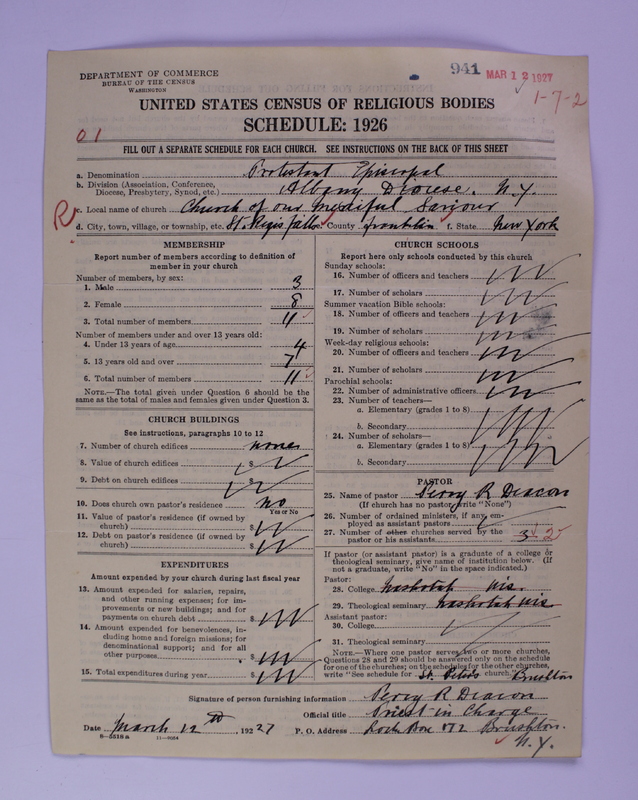 DEPARTMENT OF COMMERCE
BUREAU OF THE CENSUS
WASHINGTON
941 MAR 12 1927
1-7-2
UNITED STATES CENSUS OF RELIGIOUS BODIES
SCHEDULE: 1926
01
FILL OUT A SEPARATE SCHEDULE FOR EACH CHURCH. SEE INSTRUCTIONS ON THE BACK OF THIS SHEET
a. Denomination Protestant Episcopal
b. Division (Association, Conference, Diocese, Presbytery, Synod, etc.) Albany Diocese. N.Y.
R. c. Local name of church Church of our Merciful Saviour
d. City, town, village, or township, etc. St. Regis Falls e. County Franklin f. State New York
MEMBERSHIP
Report number of members according to definition of
member in your church
Number of members, by sex:
1. Male 3
2. Female 8
3. Total number of members 11
Number of members under and over 13 years old:
4. Under 13 years of age 4
5. 13 years old and over 7
6. Total number of members 11
NOTE.—The total given under Question 6 should be the
same as the total of males and females given under Question 3.
CHURCH BUILDINGS
See instructions, paragraphs 10 to 12
7. Number of church edifices none
8. Value of church edifices $
9. Debt on church edifices $
10. Does church own pastor's residence no
Yes or No
11. Value of pastor's residence (if owned by
church) $
12. Debt on pastor's residence (if owned by
church) $
EXPENDITURES
Amount expended by your church during last fiscal year
13. Amount expended for salaries, repairs,
and other running expenses; for im-
provements or new buildings; and for
payments on church debt $
14. Amount expended for benevolences, in-
cluding home and foreign missions; for
denominational support; and for all
other purposes $
15. Total expenditures during year $
CHURCH SCHOOLS
Report here only schools conducted by this church
Sunday schools:
16. Number of officers and teachers
17. Number of scholars
Summer vacation Bible schools:
18. Number of officers and teachers
19. Number of scholars
Week-day religious schools:
20. Number of officers and teachers
21. Number of scholars
Parochial schools:
22. Number of administrative officers
23. Number of teachers—
a. Elementary (grades 1 to 8)
b. Secondary
24. Number of scholars—
a. Elementary (grades 1 to 8)
b. Secondary
PASTOR
25. Name of pastor Percy R Deacon
(If church has no pastor, write "None")
26. Number of ordained ministers, if any, em-
ployed as assistant pastors
27. Number of other churches served by the
pastor or his assistants 3 2
If pastor (or assistant pastor) is a graduate of a college or
theological seminary, give name of institution below. (If
not a graduate, write "No" in the space indicated.)
Pastor:
28. College Nashotah Wis.
29. Theological seminary Nashotah Wis
Assistant pastor:
30. College
31. Theological seminary
NOTE.—Where one pastor serves two or more churches,
Questions 28 and 29 should be answered only on the schedule
for one of the churches; on the schedules for the other churches,
write "See schedule for St. Peters Brushton
Signature of person furnishing information Percy R Deacon
Official title Priest in Charge
Date March 12th, 1927 P. O. Address Lock Box 172 Brushton.
N.Y.
8—5518 a